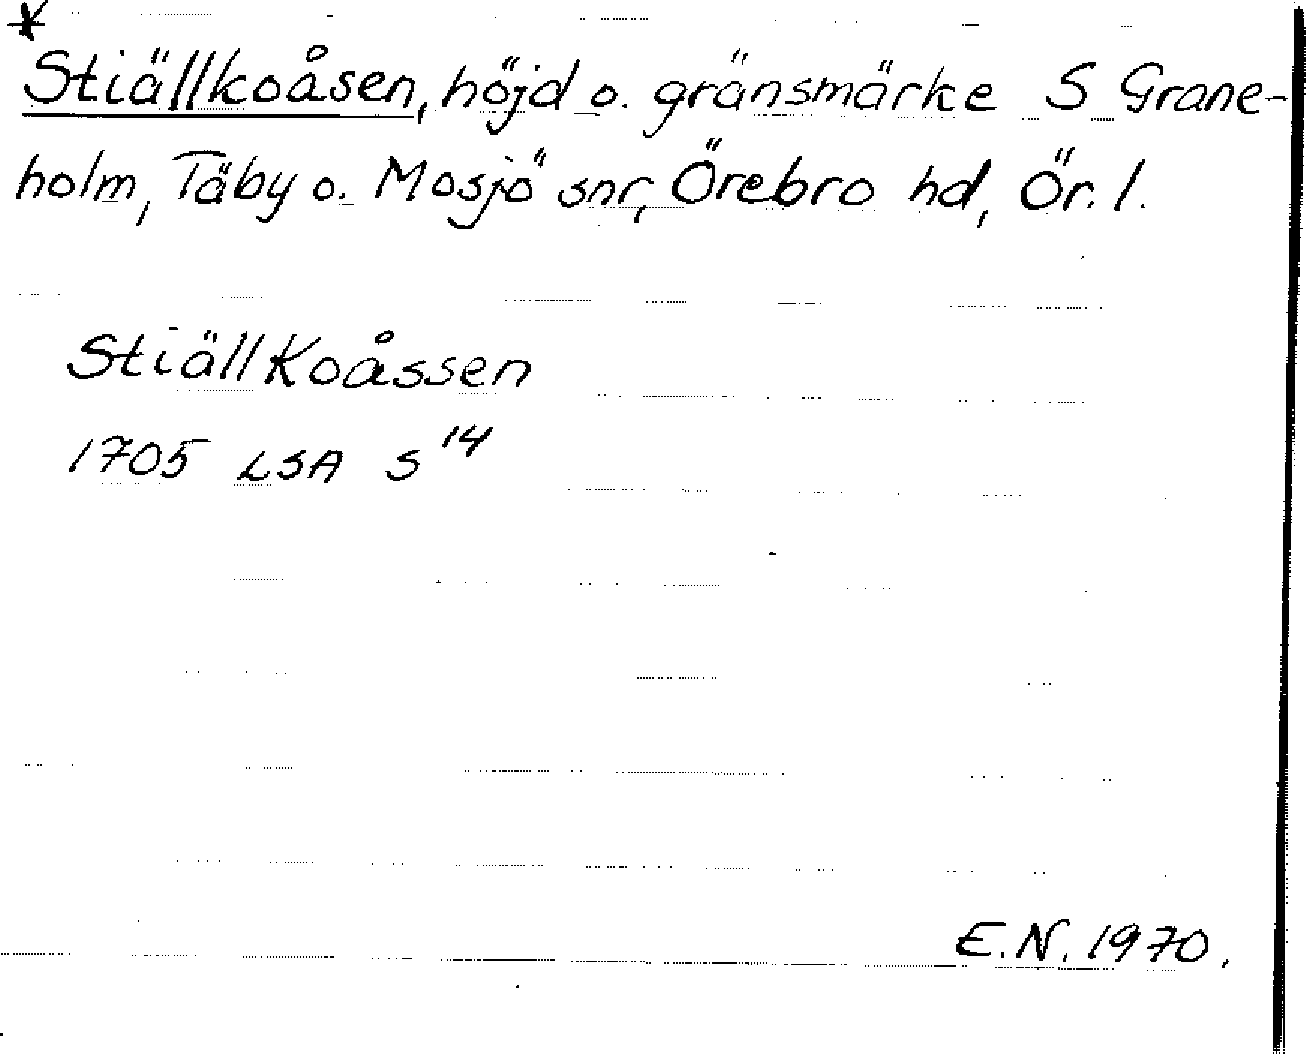 *
Stiällkoåsen, höjd o. gränsmärke S Grane-
holm, Täby o. Mosjö snr, Örebro hd, Ör. l.
StiällKoåssen
1705 LSA S 14
E.N. 1970.